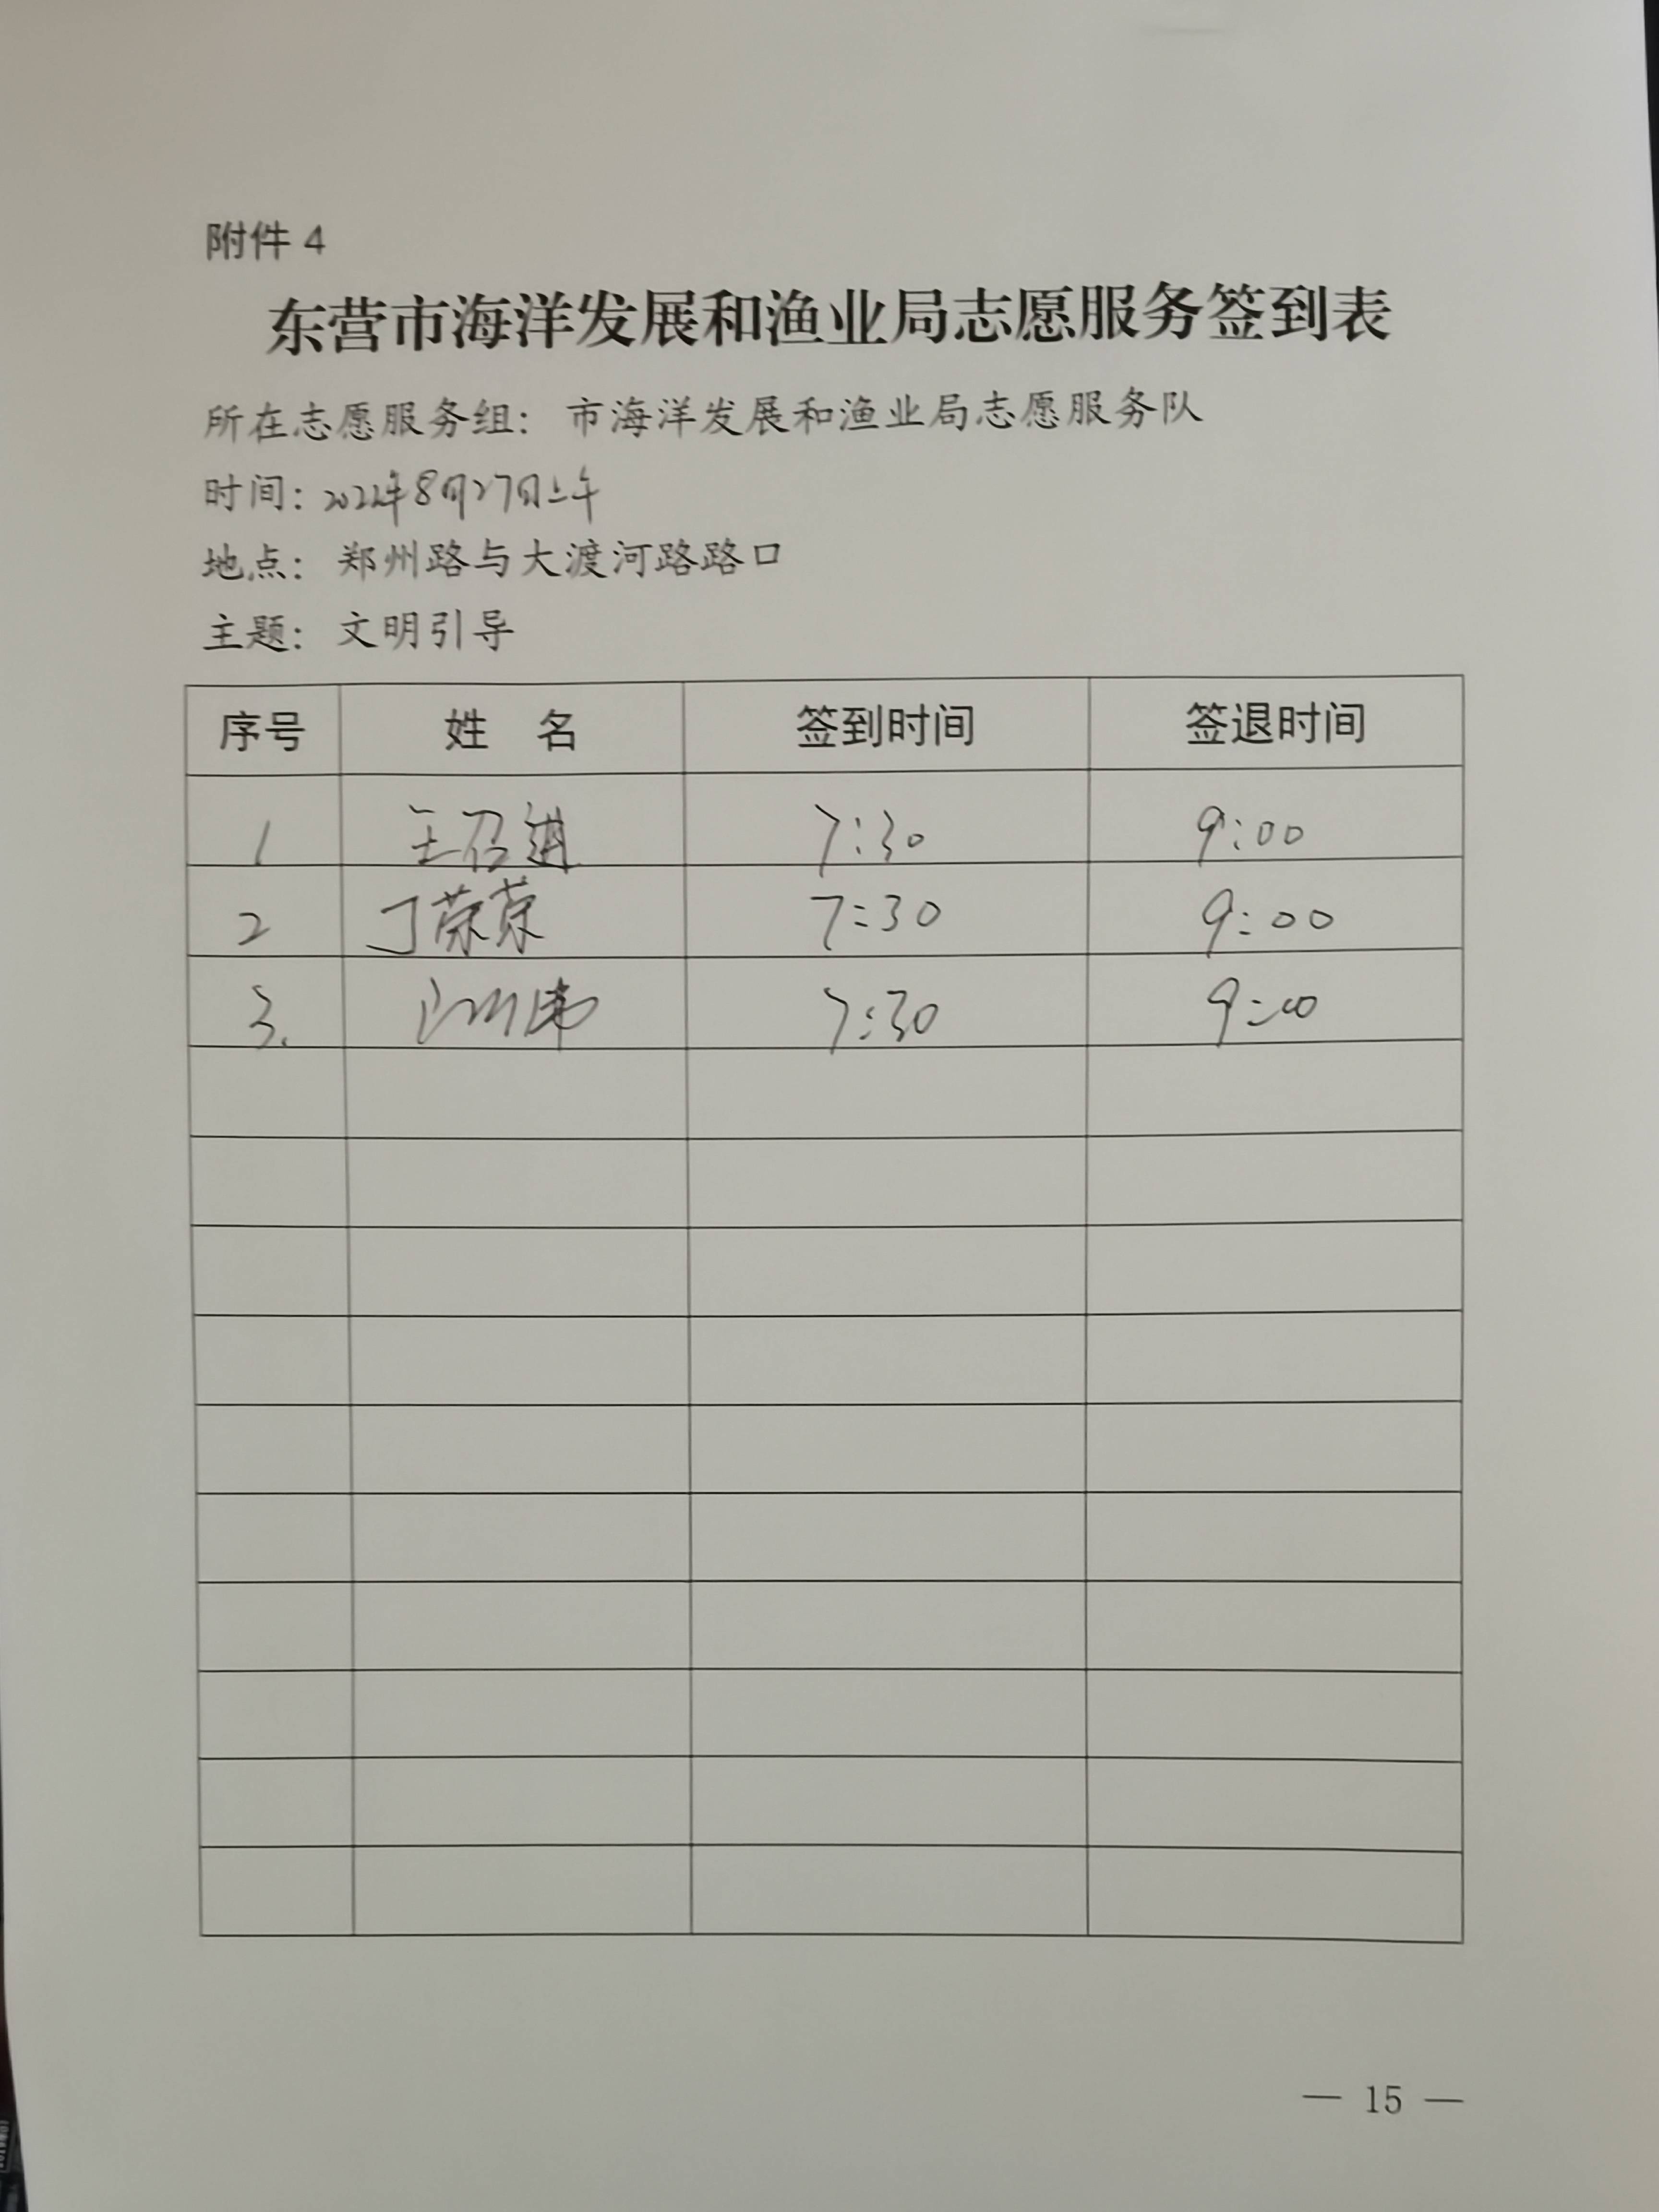 附件 4
东营市海洋发展和渔业局志愿服务签到表
所在志愿服务组：市海洋发展和渔业局志愿服务队
时间：2022年8月27日上午
地点：郑州路与大渡河路路口
主题：文明引导
序号 姓 名 签到时间 签退时间
1 王召进 7:30 9:00
2 丁荣荣 7:30 9:00
3. 7:30 9:00
— 15 —